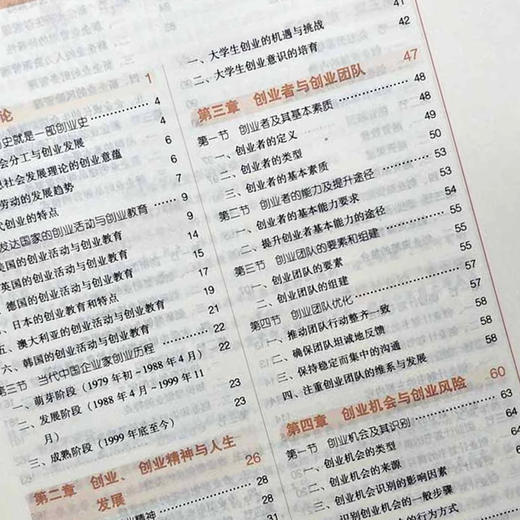 论
1
史就是一部创业史 4
会分工与创业发展 4
社会发展理论的创业意蕴 6
劳动的发展趋势 6
代创业的特点 7
发达国家的创业活动与创业教育 9
美国的创业活动与创业教育 9
英国的创业活动与创业教育 14
德国的创业活动与创业教育 15
、日本的创业教育和特点 17
五、澳大利亚的创业活动与创业教育 19
六、韩国的创业活动与创业教育 21
第三节 当代中国企业家创业历程 22
一、萌芽阶段（1979 年初－1988 年 4 月） 22
二、发展阶段（1988 年 4 月－1999 年 11
月） 23
三、成熟阶段（1999 年底至今） 23
第二章 创业、创业精神与人生
发展 26
精神 28
28
41
一、大学生创业的机遇与挑战 41
二、大学生创业意识的培育 42
第三章 创业者与创业团队 47
第一节 创业者及其基本素质 48
一、创业者的定义 48
二、创业者的类型 49
三、创业者的基本素质 50
第二节 创业者的能力及提升途径 53
一、创业者的基本能力要求 54
二、提升创业者基本能力的途径 55
第三节 创业团队的要素和组建 55
一、创业团队的要素 55
二、创业团队的组建 57
第四节 创业团队优化 57
一、推动团队行动整齐一致 58
二、确保团队坦诚地反馈 58
三、保持稳定而集中的沟通 58
四、注重创业团队的维系与发展 58
第四章 创业机会与创业风险 60
第一节 创业机会及其识别 63
一、创业机会的类型 63
二、创业机会的来源 64
三、创业机会识别的影响因素
识别创业机会的一般步骤
的行为方式